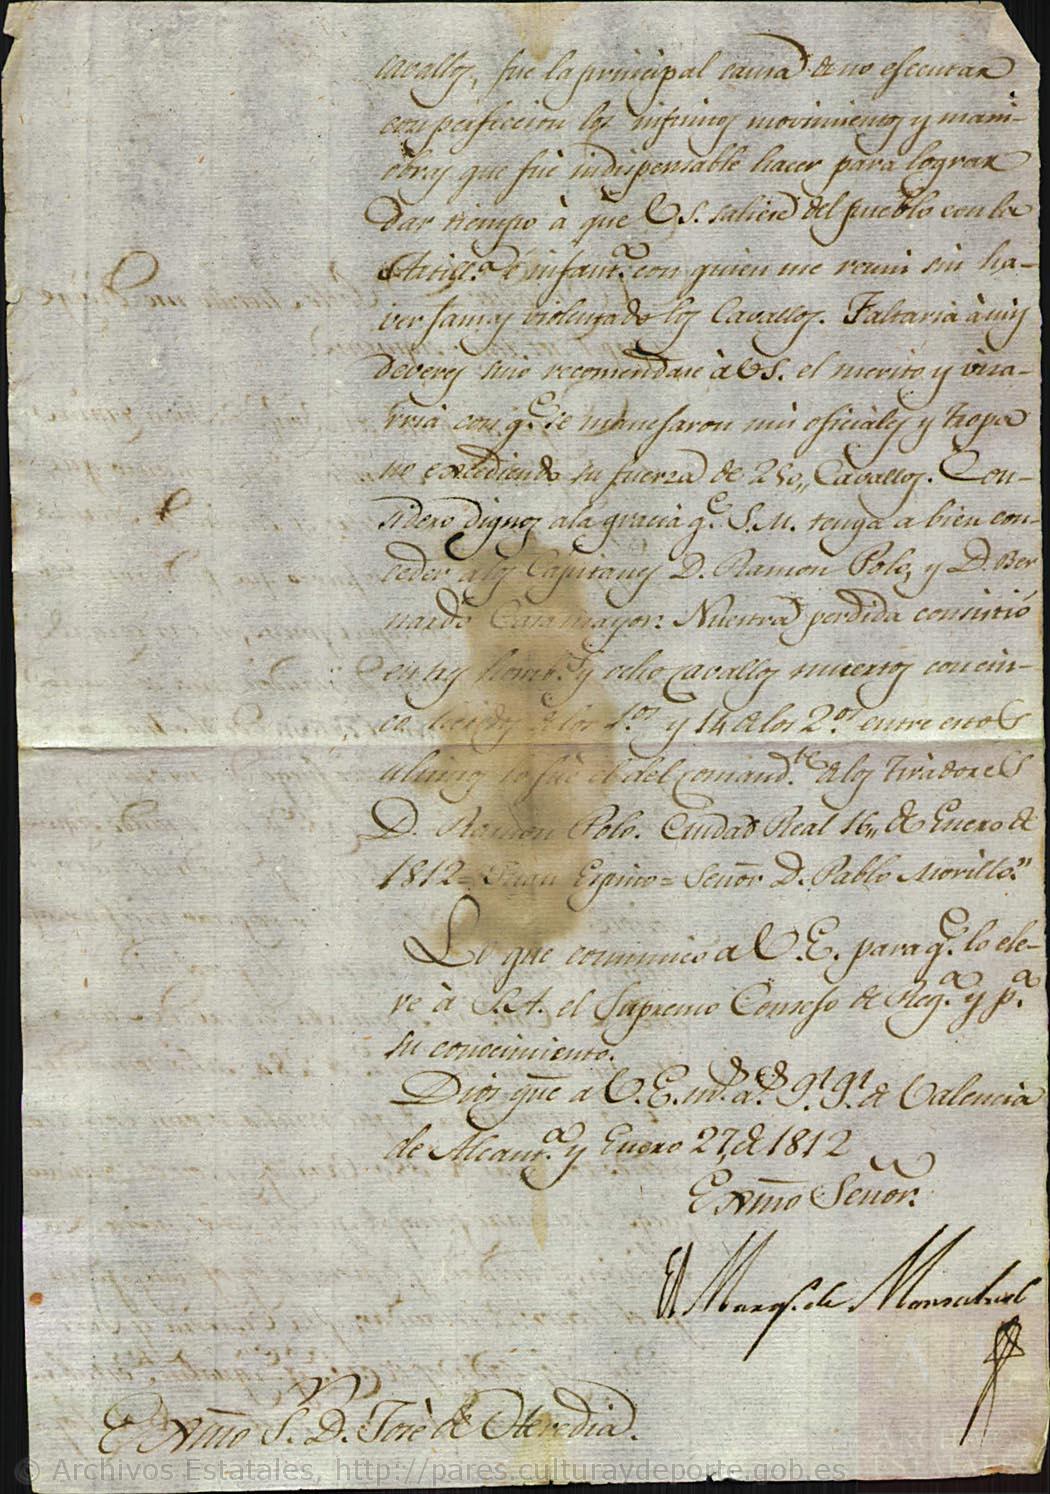 cavallos, fue la principal causa de no esecutar
con perficcion los infinitos movimientos y mani-
obras que fué indispensable hacer para lograr
dar tiempo à que V.S. saliese del pueblo con la
Artill.ª é infant.ª con quien me reuni sin ha-
ver jamas violentado los Cavallos. Faltaria à mis
deveres sino recomendase à V.S. el merito y viza-
rria con q.e se manejaron mis oficiales y tropa
no excediendo su fuerza de 250,, Cavallos. Con-
sidero dignos a la gracia q.e S.M. tenga a bien con-
ceder a los Capitanes D. Ramon Polo, y D. Ber
nardo Caramayor. Nuestra perdida consistió
en tres homb.s y ocho cavallos muertos con cin-
co heridos de los 1.os y 14 de los 2.os entre estos
ultimos lo fué el del comand.te de los Tiradores
D. Ramon Polo. Ciudad Real 16,, de Enero de
1812= Juan Espino= Señor D. Pablo Morillo."
Lo que comunico a V.E. para q.e lo ele-
ve à S.A. el Supremo Consejo de Reg.ª y p.ª
su conocimiento.
Dios gue a V.E. m.s a.s Q.l Q.l de Valencia
de Alcant.ª y Enero 27,, de 1812
Exmo Señor.
El Marqs. de Monsalud
Exmo S. D. José de Heredia.
© Archivos Estatales, http://pares.culturaydeporte.gob.es